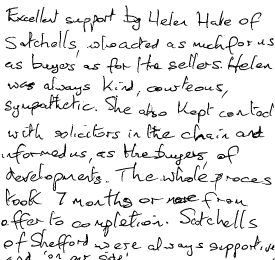 Excellent support by Helen Hake of
Satchells, who acted as much for us
as buyers as for the sellers. Helen
was always kind, courteous,
sympathetic. She also kept contact
with solicitors in the chain and
informed us, as the buyers, of
developments. The whole process
took 7 months or more from
offer to completion. Satchells
of Shefford were always supportive
and 'on our side'